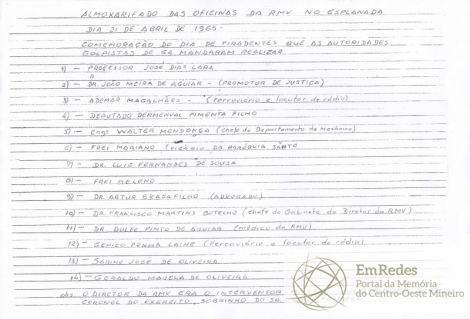 ALMOXARIFADO DAS OFICINAS DA RMV NO ESPLANADA
DIA 21 DE ABRIL DE 1965-
COMEMORAÇÃO DO DIA DE TIRADENTES QUE AS AUTORIDADES
GOLPISTAS DE 64 MANDARAM REALIZAR
1) - PROFESSOR JOSÉ DIAS LARA
2) - DR. JOÃO MEIRA DE AGUIAR - (PROMOTOR DE JUSTIÇA)
3) - ADEMAR MAGALHÃES - (Ferroviário e locutor de rádio)
4) - DEPUTADO DERMERVAL PIMENTA FILHO
5) - Engº WALTER MENDONÇA (Chefe do Departamento de Mecânica)
6) - FREI MARIANO (vigário DA PARÓQUIA SANTO
7) - DR. LUIZ FERNANDES DE SOUZA
8) - FREI HELENO
9) - DR ARTUR FILHO (ADVOGADO)
10) - DR FRANCISCO MARTINS BOTELHO (Chefe do Gabinete do Diretor da RMV)
11) - DR DULFE PINTO DE AGUIAR (médico da RMV)
12) - PENHA LAINE (Ferroviário e locutor de rádio)
13) - SABINO JOSÉ DE OLIVEIRA
14) - GERALDO MAJELA DE OLIVEIRA
obs. O DIRETOR DA RMV ERA O INTERVENTOR
CORONEL DO EXÉRCITO, SOBRINHO DO SR.
EmRedes
Portal da Memória
do Centro-Oeste Mineiro